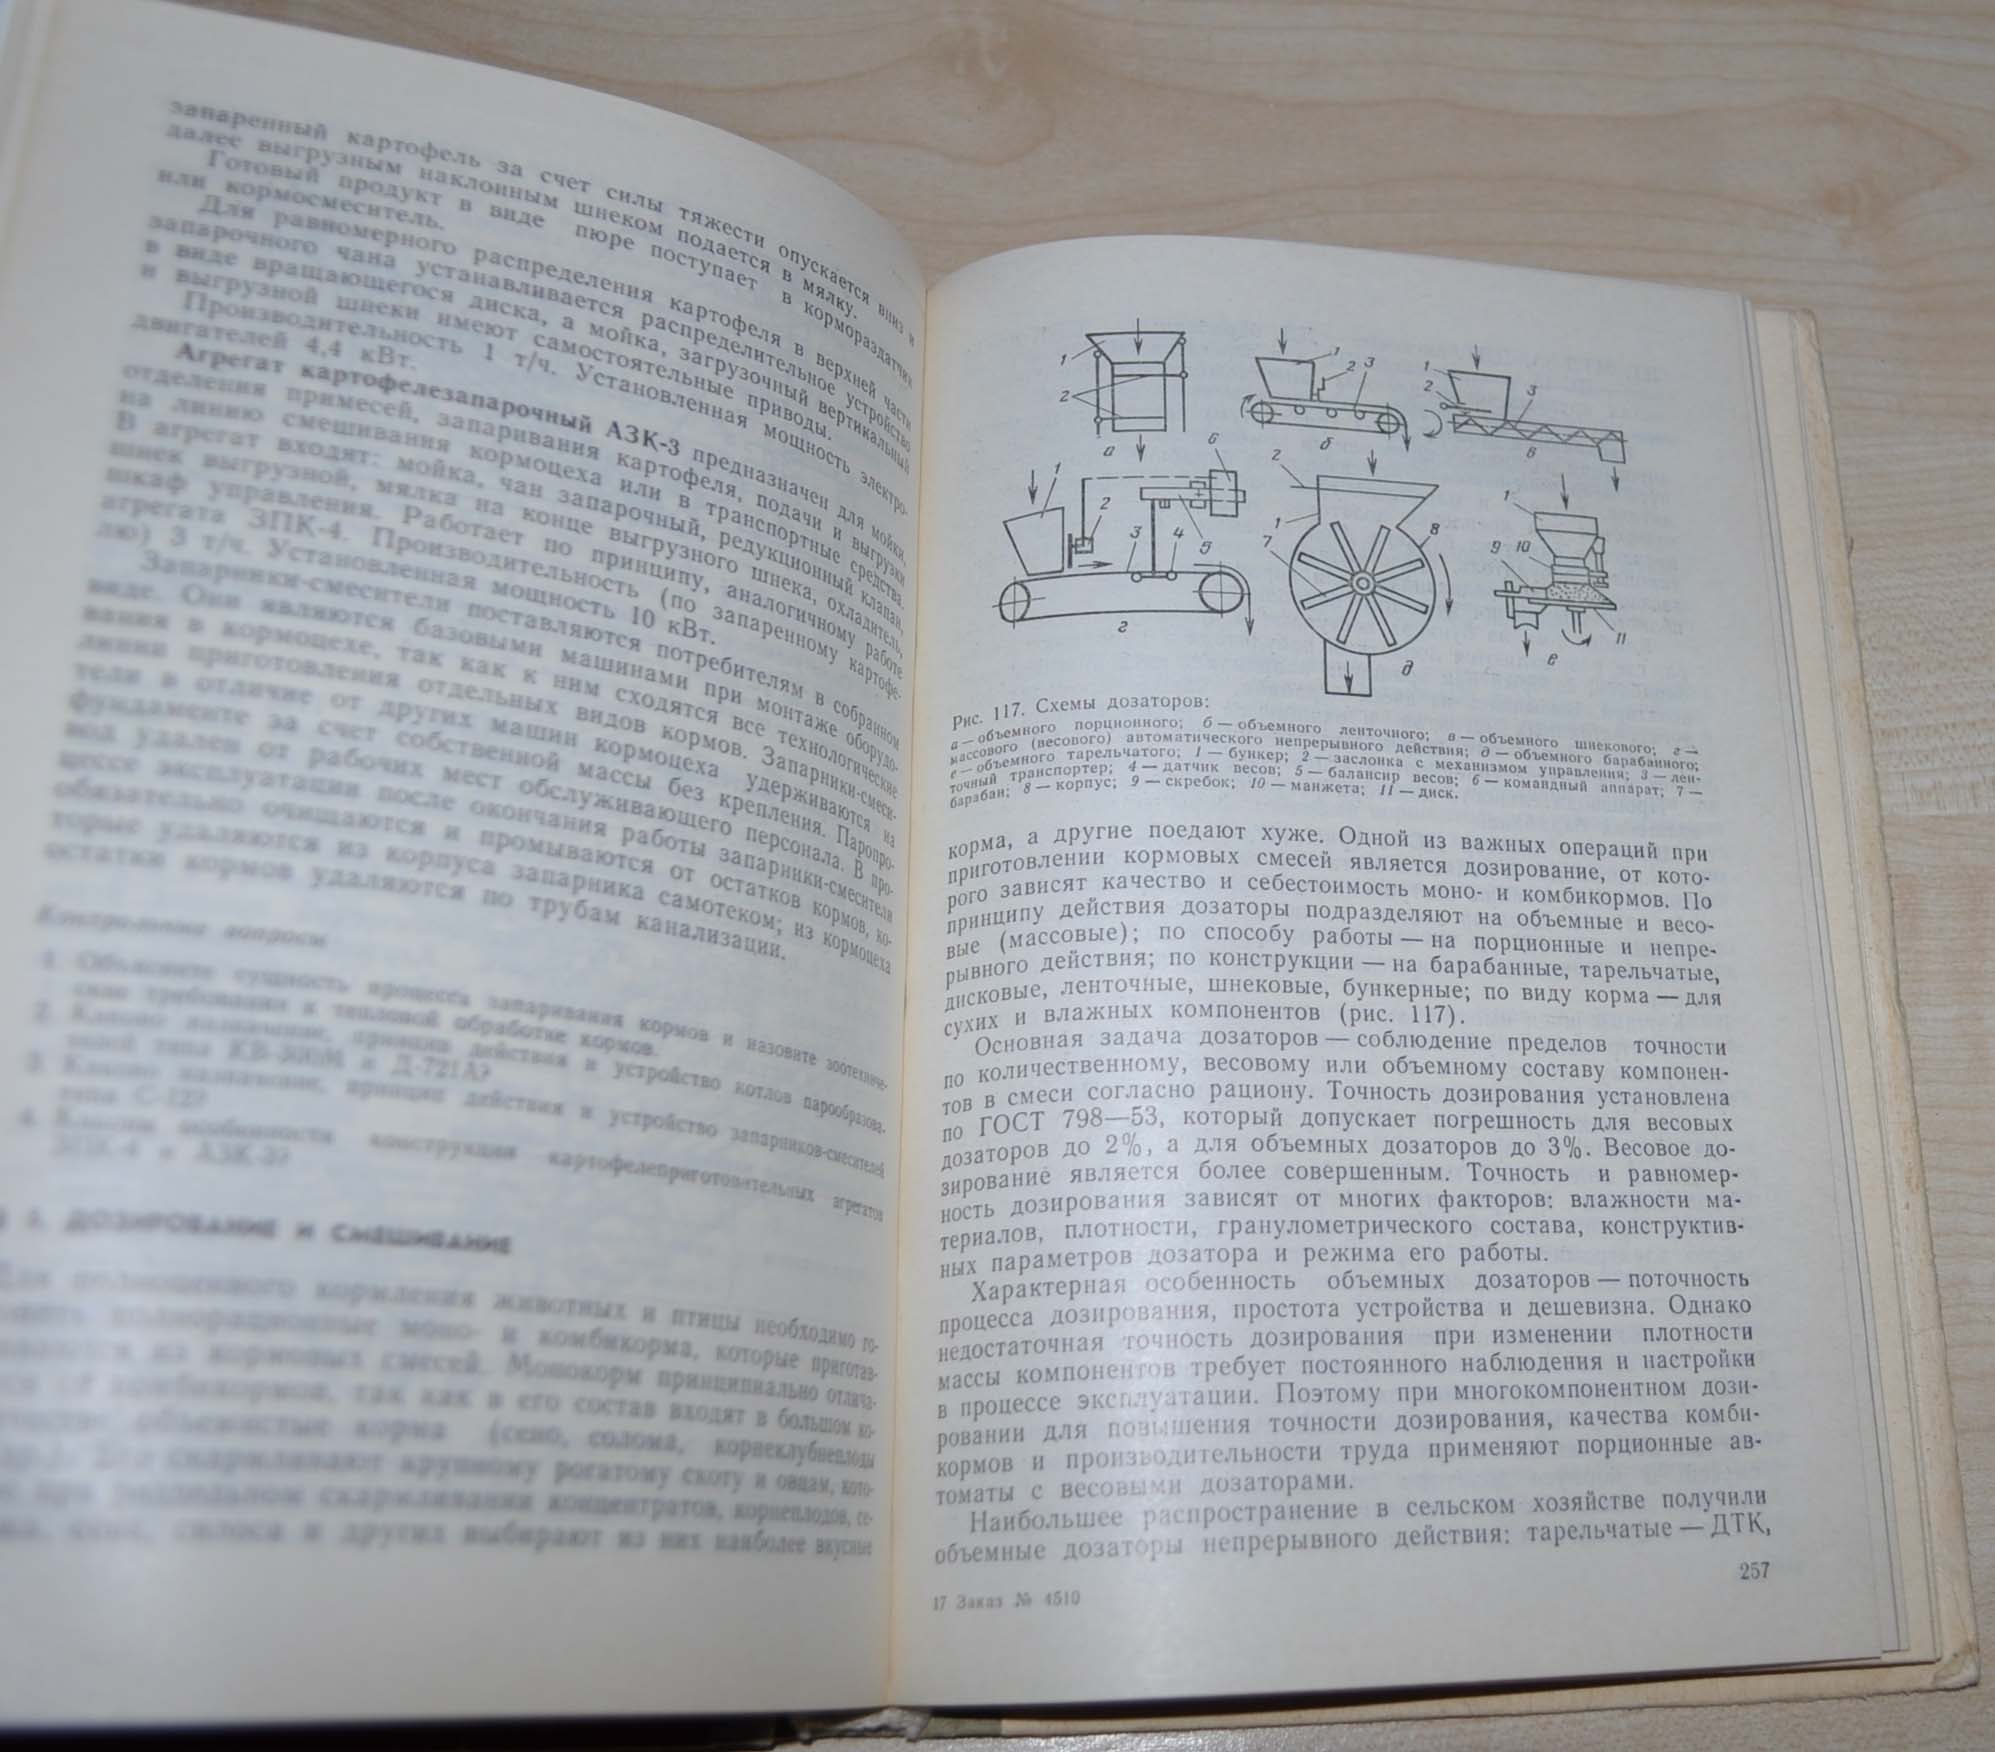 запаренный картофель за счет силы тяжести опускается вниз и
далее выгрузным наклонным шнеком подается в мялку.
Готовый продукт в виде пюре поступает в кормораздатчик
или кормосмеситель.
Для равномерного распределения картофеля в верхней части
запарочного чана устанавливается распределительное устройство
в виде вращающегося диска, а мойка, загрузочный вертикальный
и выгрузной шнеки имеют самостоятельные приводы.
Производительность 1 т/ч. Установленная мощность электро-
двигателей 4,4 кВт.
Агрегат картофелезапарочный АЗК-3 предназначен для мойки,
отделения примесей, запаривания картофеля, подачи и выгрузки
на линию смешивания кормоцеха или в транспортные средства.
В агрегат входят: мойка, чан запарочный, редукционный клапан,
шнек выгрузной, мялка на конце выгрузного шнека, охладитель,
шкаф управления. Работает по принципу, аналогичному работе
агрегата ЗПК-4. Производительность (по запаренному картофе-
лю) 3 т/ч. Установленная мощность 10 кВт.
Запарники-смесители поставляются потребителям в собранном
виде. Они являются базовыми машинами при монтаже оборудо-
вания в кормоцехе, так как к ним сходятся все технологические
линии приготовления отдельных видов кормов. Запарники-смеси-
тели в отличие от других машин кормоцеха удерживаются на
фундаменте за счет собственной массы без крепления. Паропро-
вод удален от рабочих мест обслуживающего персонала. В про-
цессе эксплуатации после окончания работы запарники-смесители
обязательно очищаются и промываются от остатков кормов, ко-
торые удаляются из корпуса запарника самотеком; из кормоцеха
остатки кормов удаляются по трубам канализации.
Контрольные вопросы
1. Объясните сущность процесса запаривания кормов и назовите зоотехниче-
ские требования к тепловой обработке кормов.
2. Каково назначение, принцип действия и устройство котлов парообразова-
телей типа КВ-300М и Д-721А?
3. Каково назначение, принцип действия и устройство запарников-смесителей
типа С-12?
4. Каковы особенности конструкции картофелеприготовительных агрегатов
ЗПК-4 и АЗК-3?
5. ДОЗИРОВАНИЕ И СМЕШИВАНИЕ
Для полноценного кормления животных и птицы необходимо го-
товить полнорационные моно- и комбикорма, которые приготав-
из кормовых смесей. Монокорм принципиально отлича-
от комбикормов, так как в его состав входят в большом ко-
объемистые корма (сено, солома, корнеклубнеплоды
скармливают крупному рогатому скоту и овцам, кото-
при раздельном скармливании концентратов, корнеплодов, се-
силоса и других выбирают из них наиболее вкусные
1
2
а
1
2 3
б
1
2
3
в
1
2
3
4
5
6
г
2
1
7
8
д
1
9 10
11
е
Рис. 117. Схемы дозаторов:
а — объемного порционного; б — объемного ленточного; в — объемного шнекового; г —
массового (весового) автоматического непрерывного действия; д — объемного барабанного;
е — объемного тарельчатого; 1 — бункер; 2 — заслонка с механизмом управления; 3 — лен-
точный транспортер; 4 — датчик весов; 5 — балансир весов; 6 — командный аппарат; 7 —
барабан; 8 — корпус; 9 — скребок; 10 — манжета; 11 — диск.
корма, а другие поедают хуже. Одной из важных операций при
приготовлении кормовых смесей является дозирование, от кото-
рого зависят качество и себестоимость моно- и комбикормов. По
принципу действия дозаторы подразделяют на объемные и весо-
вые (массовые); по способу работы — на порционные и непре-
рывного действия; по конструкции — на барабанные, тарельчатые,
дисковые, ленточные, шнековые, бункерные; по виду корма — для
сухих и влажных компонентов (рис. 117).
Основная задача дозаторов — соблюдение пределов точности
по количественному, весовому или объемному составу компонен-
тов в смеси согласно рациону. Точность дозирования установлена
по ГОСТ 798—53, который допускает погрешность для весовых
дозаторов до 2%, а для объемных дозаторов до 3%. Весовое до-
зирование является более совершенным. Точность и равномер-
ность дозирования зависят от многих факторов: влажности ма-
териалов, плотности, гранулометрического состава, конструктив-
ных параметров дозатора и режима его работы.
Характерная особенность объемных дозаторов — поточность
процесса дозирования, простота устройства и дешевизна. Однако
недостаточная точность дозирования при изменении плотности
массы компонентов требует постоянного наблюдения и настройки
в процессе эксплуатации. Поэтому при многокомпонентном дози-
ровании для повышения точности дозирования, качества комби-
кормов и производительности труда применяют порционные ав-
томаты с весовыми дозаторами.
Наибольшее распространение в сельском хозяйстве получили
объемные дозаторы непрерывного действия: тарельчатые — ДТК,
17 Заказ № 4510
257